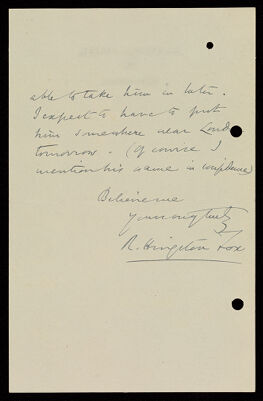 able to take him in later.
I expect to have to put
him somewhere near Lond
tomorrow. (Of course I
mention his name in confidence)
Believe me
Yours very truly
R. Hingston Fox